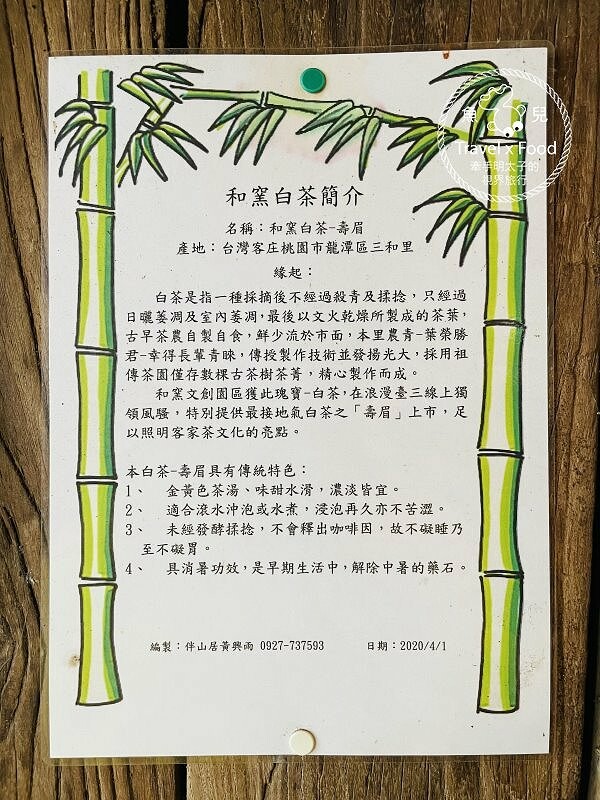 魚 兒
Travel x Food
牽手明太子的
視界旅行
和窯白茶簡介
名稱：和窯白茶-壽眉
產地：台灣客庄桃園市龍潭區三和里
緣起：
白茶是指一種採摘後不經過殺青及揉捻，只經過
日曬萎凋及室內萎凋，最後以文火乾燥所製成的茶葉，
古早茶農自製自食，鮮少流於市面，本里農青-葉榮勝
君-幸得長輩青睞，傳授製作技術並發揚光大，採用祖
傳茶園僅存數棵古茶樹茶菁，精心製作而成。
和窯文創園區獲此瑰寶-白茶，在浪漫臺三線上獨
領風騷，特別提供最接地氣白茶之「壽眉」上市，足
以照明客家茶文化的亮點。
本白茶-壽眉具有傳統特色：
1、 金黃色茶湯、味甜水滑，濃淡皆宜。
2、 適合滾水沖泡或水煮，浸泡再久亦不苦澀。
3、 未經發酵揉捻，不會釋出咖啡因，故不礙睡乃
至不礙胃。
4、 具消暑功效，是早期生活中，解除中暑的藥石。
編製：伴山居黃興雨 0927-737593 日期：2020/4/1